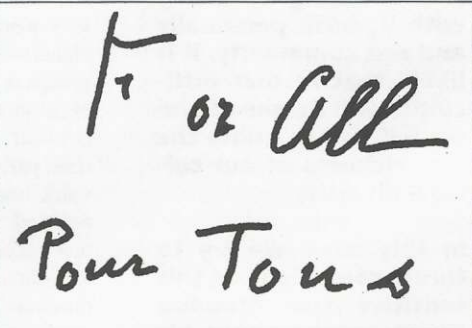 For All
Pour Tous